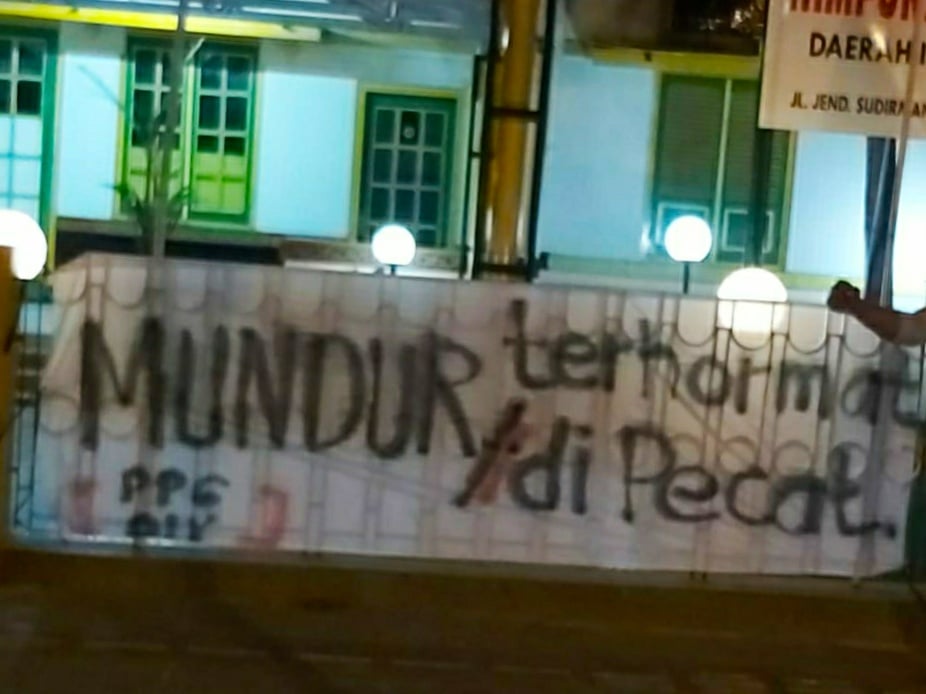 DAERAH
JL. JEND. SUDIRMAN
MUNDUR terhormat
/di Pecat.
PPG
DIY